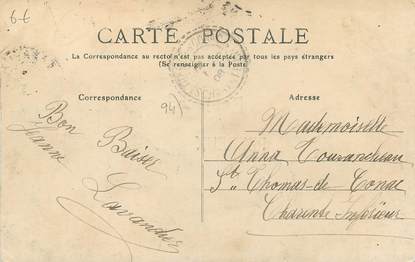 6€
CARTE POSTALE
La Correspondance au recto n'est pas acceptée par tous les pays étrangers
(Se renseigner à la Poste)
Correspondance
94
Adresse
Bon
Baiser
Jeanne
Mademoiselle
Anna
St Thomas-de Conac
Charente Inférieur